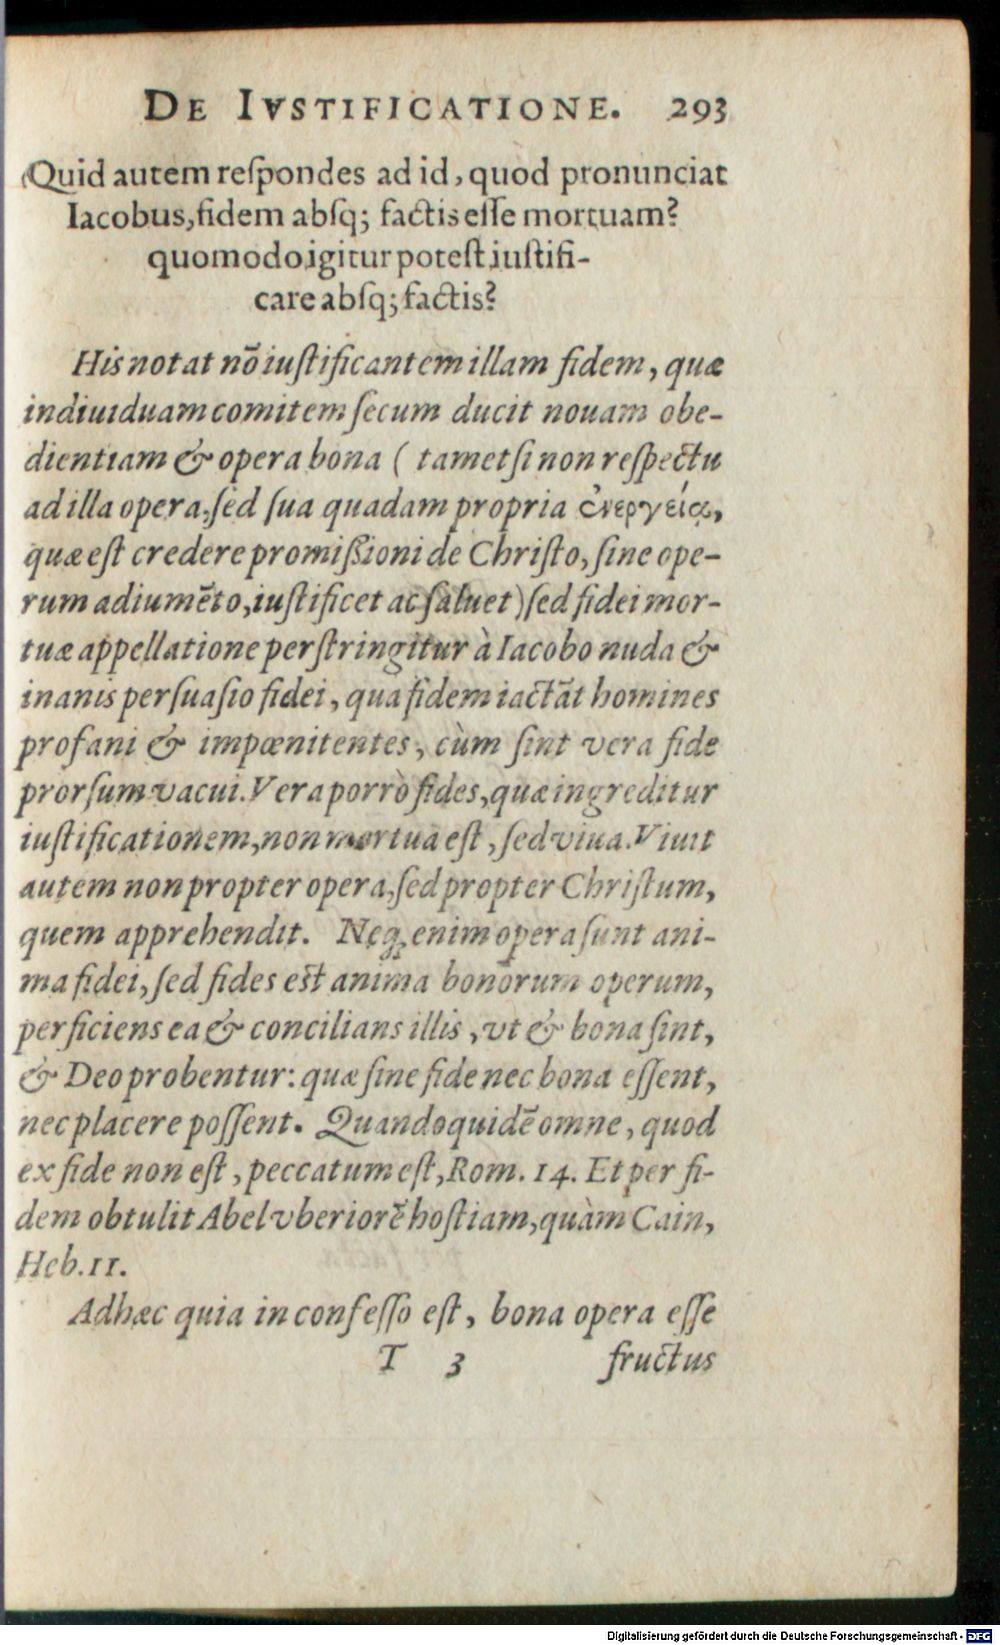 DE IVSTIFICATIONE. 293
Quid autem reſpondes ad id, quod pronunciat
Iacobus, fidem abſq; factis eſſe mortuam?
quomodo igitur poteſt iuſtifi-
care abſq; factis?
His notat nō iuſtificantem illam fidem, quæ
indiuiduam comitem ſecum ducit nouam obe-
dientiam & opera bona ( tametſi non reſpectu
ad illa opera, ſed ſua quadam propria ἐνεργείᾳ,
quæ eſt credere promiſsioni de Chriſto, ſine ope-
rum adiumēto, iuſtificet ac ſaluet) ſed fidei mor-
tuæ appellatione perſtringitur à Iacobo nuda &
inanis perſuaſio fidei, qua fidem iactāt homines
profani & impœnitentes, cùm ſint vera fide
prorſum vacui. Vera porrò fides, quæ ingreditur
iuſtificationem, non mortua eſt, ſed viua. Viuit
autem non propter opera, ſed propter Chriſtum,
quem apprehendit. Neq; enim opera ſunt ani-
ma fidei, ſed fides eſt anima bonorum operum,
perficiens ea & concilians illis, vt & bona ſint,
& Deo probentur: quæ ſine fide nec bona eſſent,
nec placere poſſent. Quandoquidē omne, quod
ex fide non eſt, peccatum eſt, Rom. 14. Et per fi-
dem obtulit Abel vberiorē hoſtiam, quàm Cain,
Heb. 11.
Adhæc quia in confeſſo eſt, bona opera eſſe
T 3 fructus
Digitalisierung gefördert durch die Deutsche Forschungsgemeinschaft - DFG